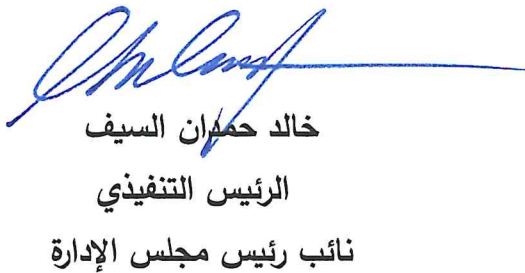 خالد حمدان السيف
الرئيس التنفيذي
نائب رئيس مجلس الإدارة